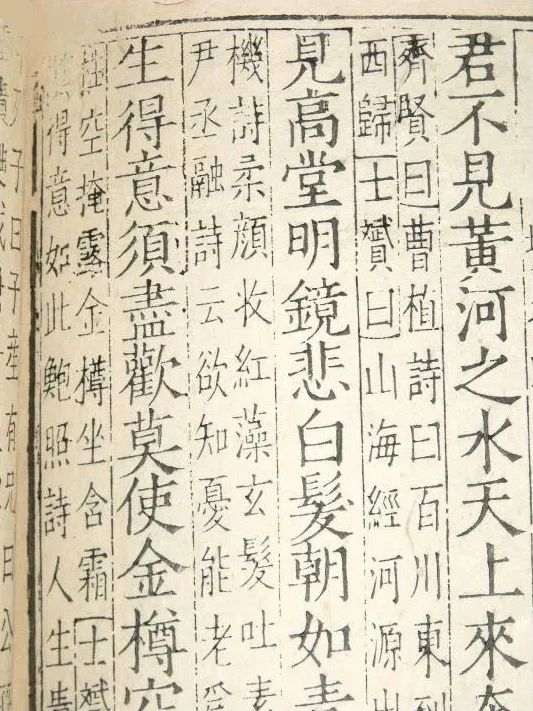 君不見黃河之水天上來奔
齊賢曰曹植詩曰百川東到
西歸士贇曰山海經河源出
見高堂明鏡悲白髮朝如青
機詩柔顏收紅藻玄髮吐素
尹丞融詩云欲知憂能老爲
生得意須盡歡莫使金樽空
柱空掩露金樽坐含霜士贇
得意如此鮑照詩人生貴
子曰子產有兄曰公